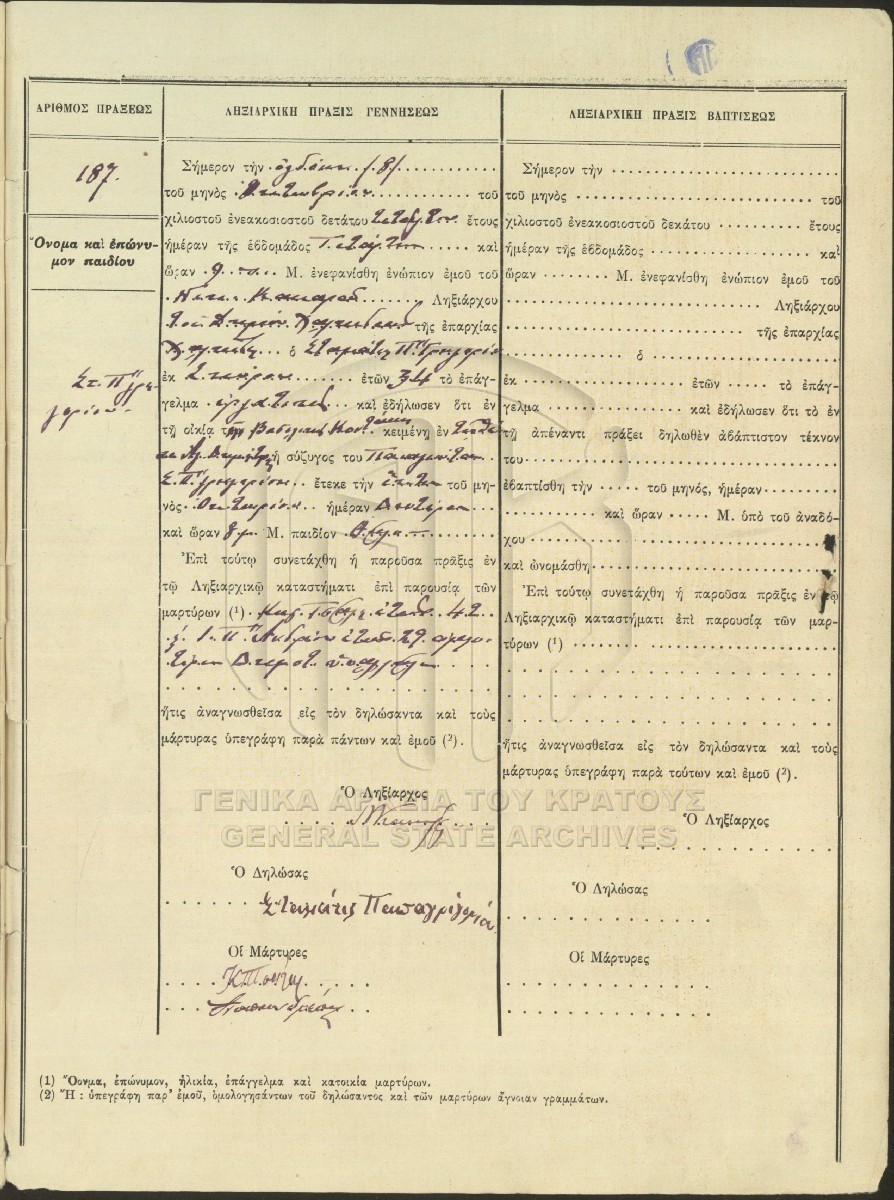 ΑΡΙΘΜΟΣ ΠΡΑΞΕΩΣ
187.
Ὄνομα καὶ ἐπώνυ-
μον παιδίου
Στ. Π''γρη
γορίου
ΛΗΞΙΑΡΧΙΚΗ ΠΡΑΞΙΣ ΓΕΝΝΗΣΕΩΣ
Σήμερον τὴν ὀγδόην (8)
τοῦ μηνὸς Ὀκτωβρίου τοῦ
χιλιοστοῦ ἐνεακοσιοστοῦ δετάτου τετάρτου ἔτους
ἡμέραν τῆς ἑβδομάδος Τετάρτην καὶ
ὥραν 9 Μ. ἐνεφανίσθη ἐνώπιον ἐμοῦ τοῦ
Ληξιάρχου
τοῦ Δήμου Χαλκιδέων τῆς ἐπαρχίας
Χαλκίδος ὁ Σταμάτης Π''Γρηγορίου
ἐκ ἐτῶν 34 τὸ ἐπάγ-
γελμα ἐργάτης καὶ ἐδήλωσεν ὅτι ἐν
τῇ οἰκίᾳ κειμένῃ ἐν
Ἁγ. Δημήτρ ἡ σύζυγος του Παναγιώτα
Σ. Π''γρηγορίου ἔτεκε τὴν ἕκτην τοῦ μη-
νὸς Ὀκτωβρίου ἡμέραν Δευτέραν
καὶ ὥραν 8 Μ. παιδίον θῆλυ
Ἐπὶ τούτῳ συνετάχθη ἡ παροῦσα πρᾶξις ἐν
τῷ Ληξιαρχικῷ καταστήματι ἐπὶ παρουσίᾳ τῶν
μαρτύρων (¹). ἐτῶν 42
Π''Ανδρέου ἐτῶν 29
Δημοτ. ὑπαλλήλων
ἥτις ἀναγνωσθεῖσα εἰς τὸν δηλώσαντα καὶ τοὺς
μάρτυρας ὑπεγράφη παρὰ πάντων καὶ ἐμοῦ (²).
Ὁ Ληξίαρχος
Ὁ Δηλώσας
Σταμάτις Παπαγρίγορίου
Οἱ Μάρτυρες
ΛΗΞΙΑΡΧΙΚΗ ΠΡΑΞΙΣ ΒΑΠΤΙΣΕΩΣ
Σήμερον τὴν
τοῦ μηνὸς τοῦ
χιλιοστοῦ ἐνεακοσιοστοῦ δεκάτου ἔτους
ἡμέραν τῆς ἑβδομάδος καὶ
ὥραν Μ. ἐνεφανίσθη ἐνώπιον ἐμοῦ τοῦ
Ληξιάρχου
τῆς ἐπαρχίας
ὁ
ἐκ ἐτῶν τὸ ἐπάγ-
γελμα καὶ ἐδήλωσεν ὅτι τὸ ἐν
τῇ ἀπέναντι πράξει δηλωθὲν ἀβάπτιστον τέκνον
του
ἐβαπτίσθη τὴν τοῦ μηνός, ἡμέραν
καὶ ὥραν Μ. ὑπὸ τοῦ ἀναδό-
χου
καὶ ὠνομάσθη
Ἐπὶ τούτῳ συνετάχθη ἡ παροῦσα πρᾶξις ἐν τῷ
Ληξιαρχικῷ καταστήματι ἐπὶ παρουσίᾳ τῶν μαρ-
τύρων (¹)
ἥτις ἀναγνωσθεῖσα εἰς τὸν δηλώσαντα καὶ τοὺς
μάρτυρας ὑπεγράφη παρὰ τούτων καὶ ἐμοῦ (²).
Ὁ Ληξίαρχος
Ὁ Δηλώσας
Οἱ Μάρτυρες
ΓΕΝΙΚΑ ΑΡΧΕΙΑ ΤΟΥ ΚΡΑΤΟΥΣ
GENERAL STATE ARCHIVES
(1) Ὄονμα, ἐπώνυμον, ἡλικία, ἐπάγγελμα καὶ κατοικία μαρτύρων.
(2) Ἢ : ὑπεγράφη παρ' ἐμοῦ, ὁμολογησάντων τοῦ δηλώσαντος καὶ τῶν μαρτύρων ἄγνοιαν γραμμάτων.